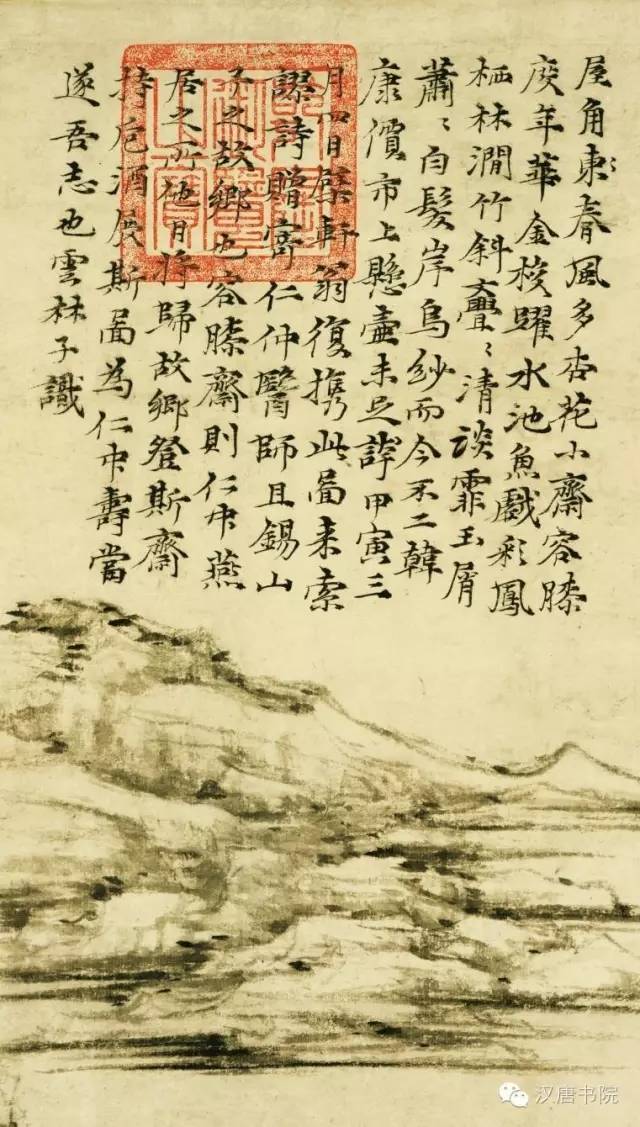 屋角東春風多杏花小齋容膝
度年華金梭躍水池魚戲彩鳳
栖林澗竹斜亹〻清談霏玉屑
蕭〻白髮岸烏紗而今不二韓
康價市上懸壺未足誇甲寅三
月四日檗軒翁復携此啚来索
謬詩贈寄仁仲醫師且錫山
予之故鄉也容膝齋則仁中燕
居之所他日將歸故鄉登斯齋
持巵酒展斯啚為仁中壽當
遂吾志也雲林子識
汉唐书院